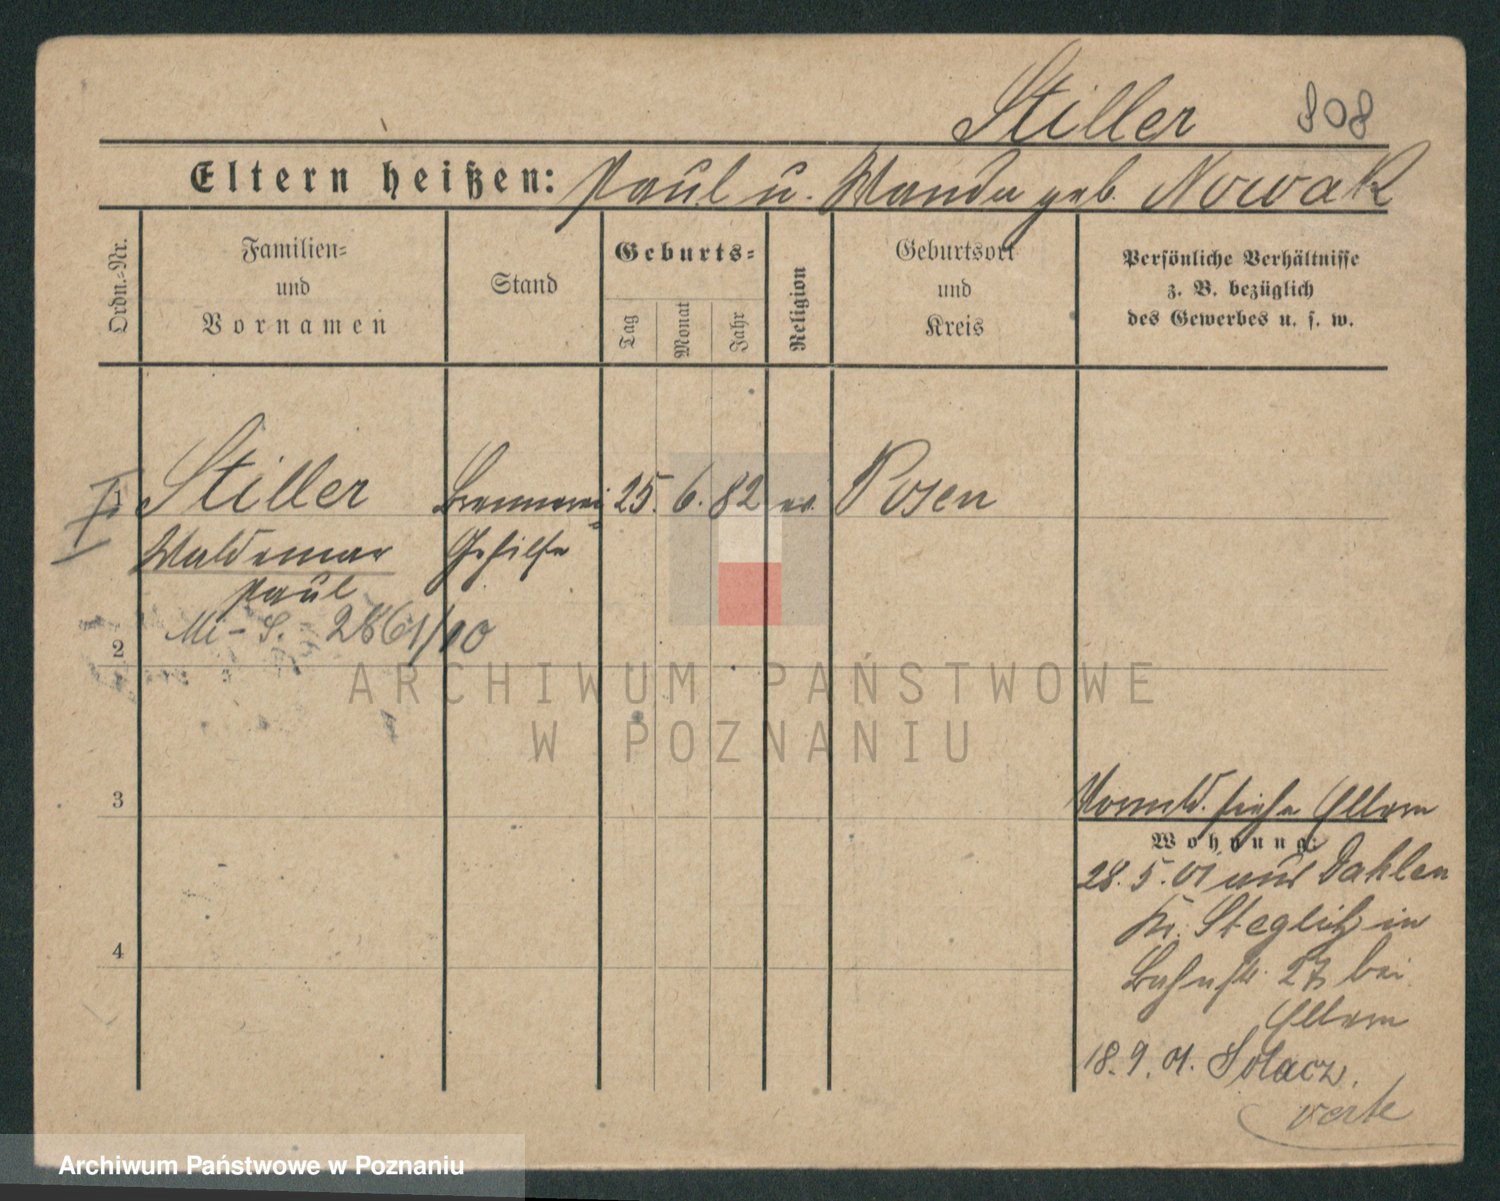 Stiller 808
Eltern heißen: Paul u. Wanda geb. Nowak
Ordn.=Nr.
Familien=
und
Vornamen
Stand
Geburts=
Tag
Monat
Jahr
Religion
Geburtsort
und
Kreis
Persönliche Verhältnisse
z. B. bezüglich
des Gewerbes u. s. w.
1 Stiller Brennerei 25. 6. 82 ev. Posen
Waldemar Gehilfe
Paul
Mi-S. 2861/10
2
ARCHIWUM PAŃSTWOWE
W POZNANIU
3
Vormld. siehe Eltern
Wohnung:
28. 5. 01 aus Dahlen
Kr. Steglitz in
Bahnstr. 27 bei
Eltern
4
18. 9. 01. Solacz.
verte
Archiwum Państwowe w Poznaniu